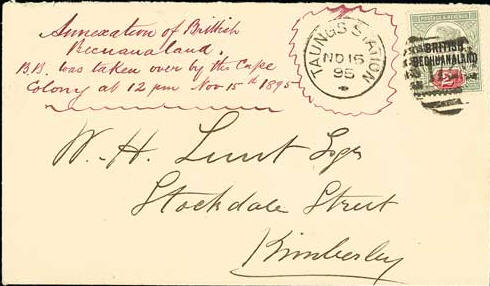 Annexation of British
Bechuanaland.
B.B. was taken over by the Cape
Colony at 12 pm Nov 15th 1895
TAUNGS STATION
NO 16
95
POSTAGE & REVENUE
BRITISH
BECHUANALAND
W. H. Lunt Esqr
Stockdale Street
Kimberley